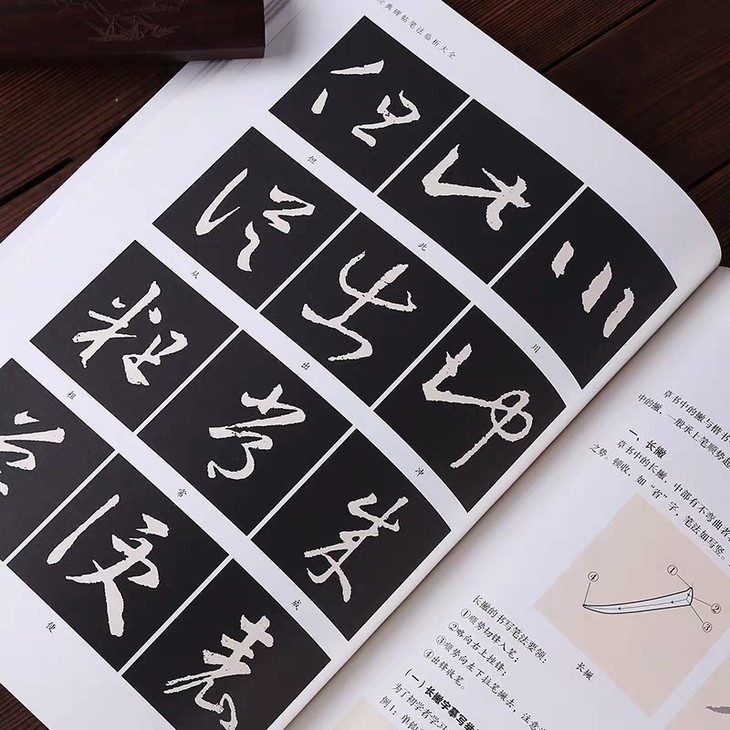 经典碑帖笔法临析大全
但
此
川
从
出
冲
粗
常
成
草书中的撇与楷书
中的撇，一般承上笔顺势起
一、长撇
草书中的长撇，中部有不弯曲者
之势。顿收，如“省”字，笔法如写竖。
①
②
③
④
长撇
长撇的书写笔法要领：
①顺势切锋入笔；
②略向右上挫锋；
③顺势向左下拉笔撇去，注意
④出锋收笔。
（一）长撇字摹写举
为了初学者学习
例1：单钩